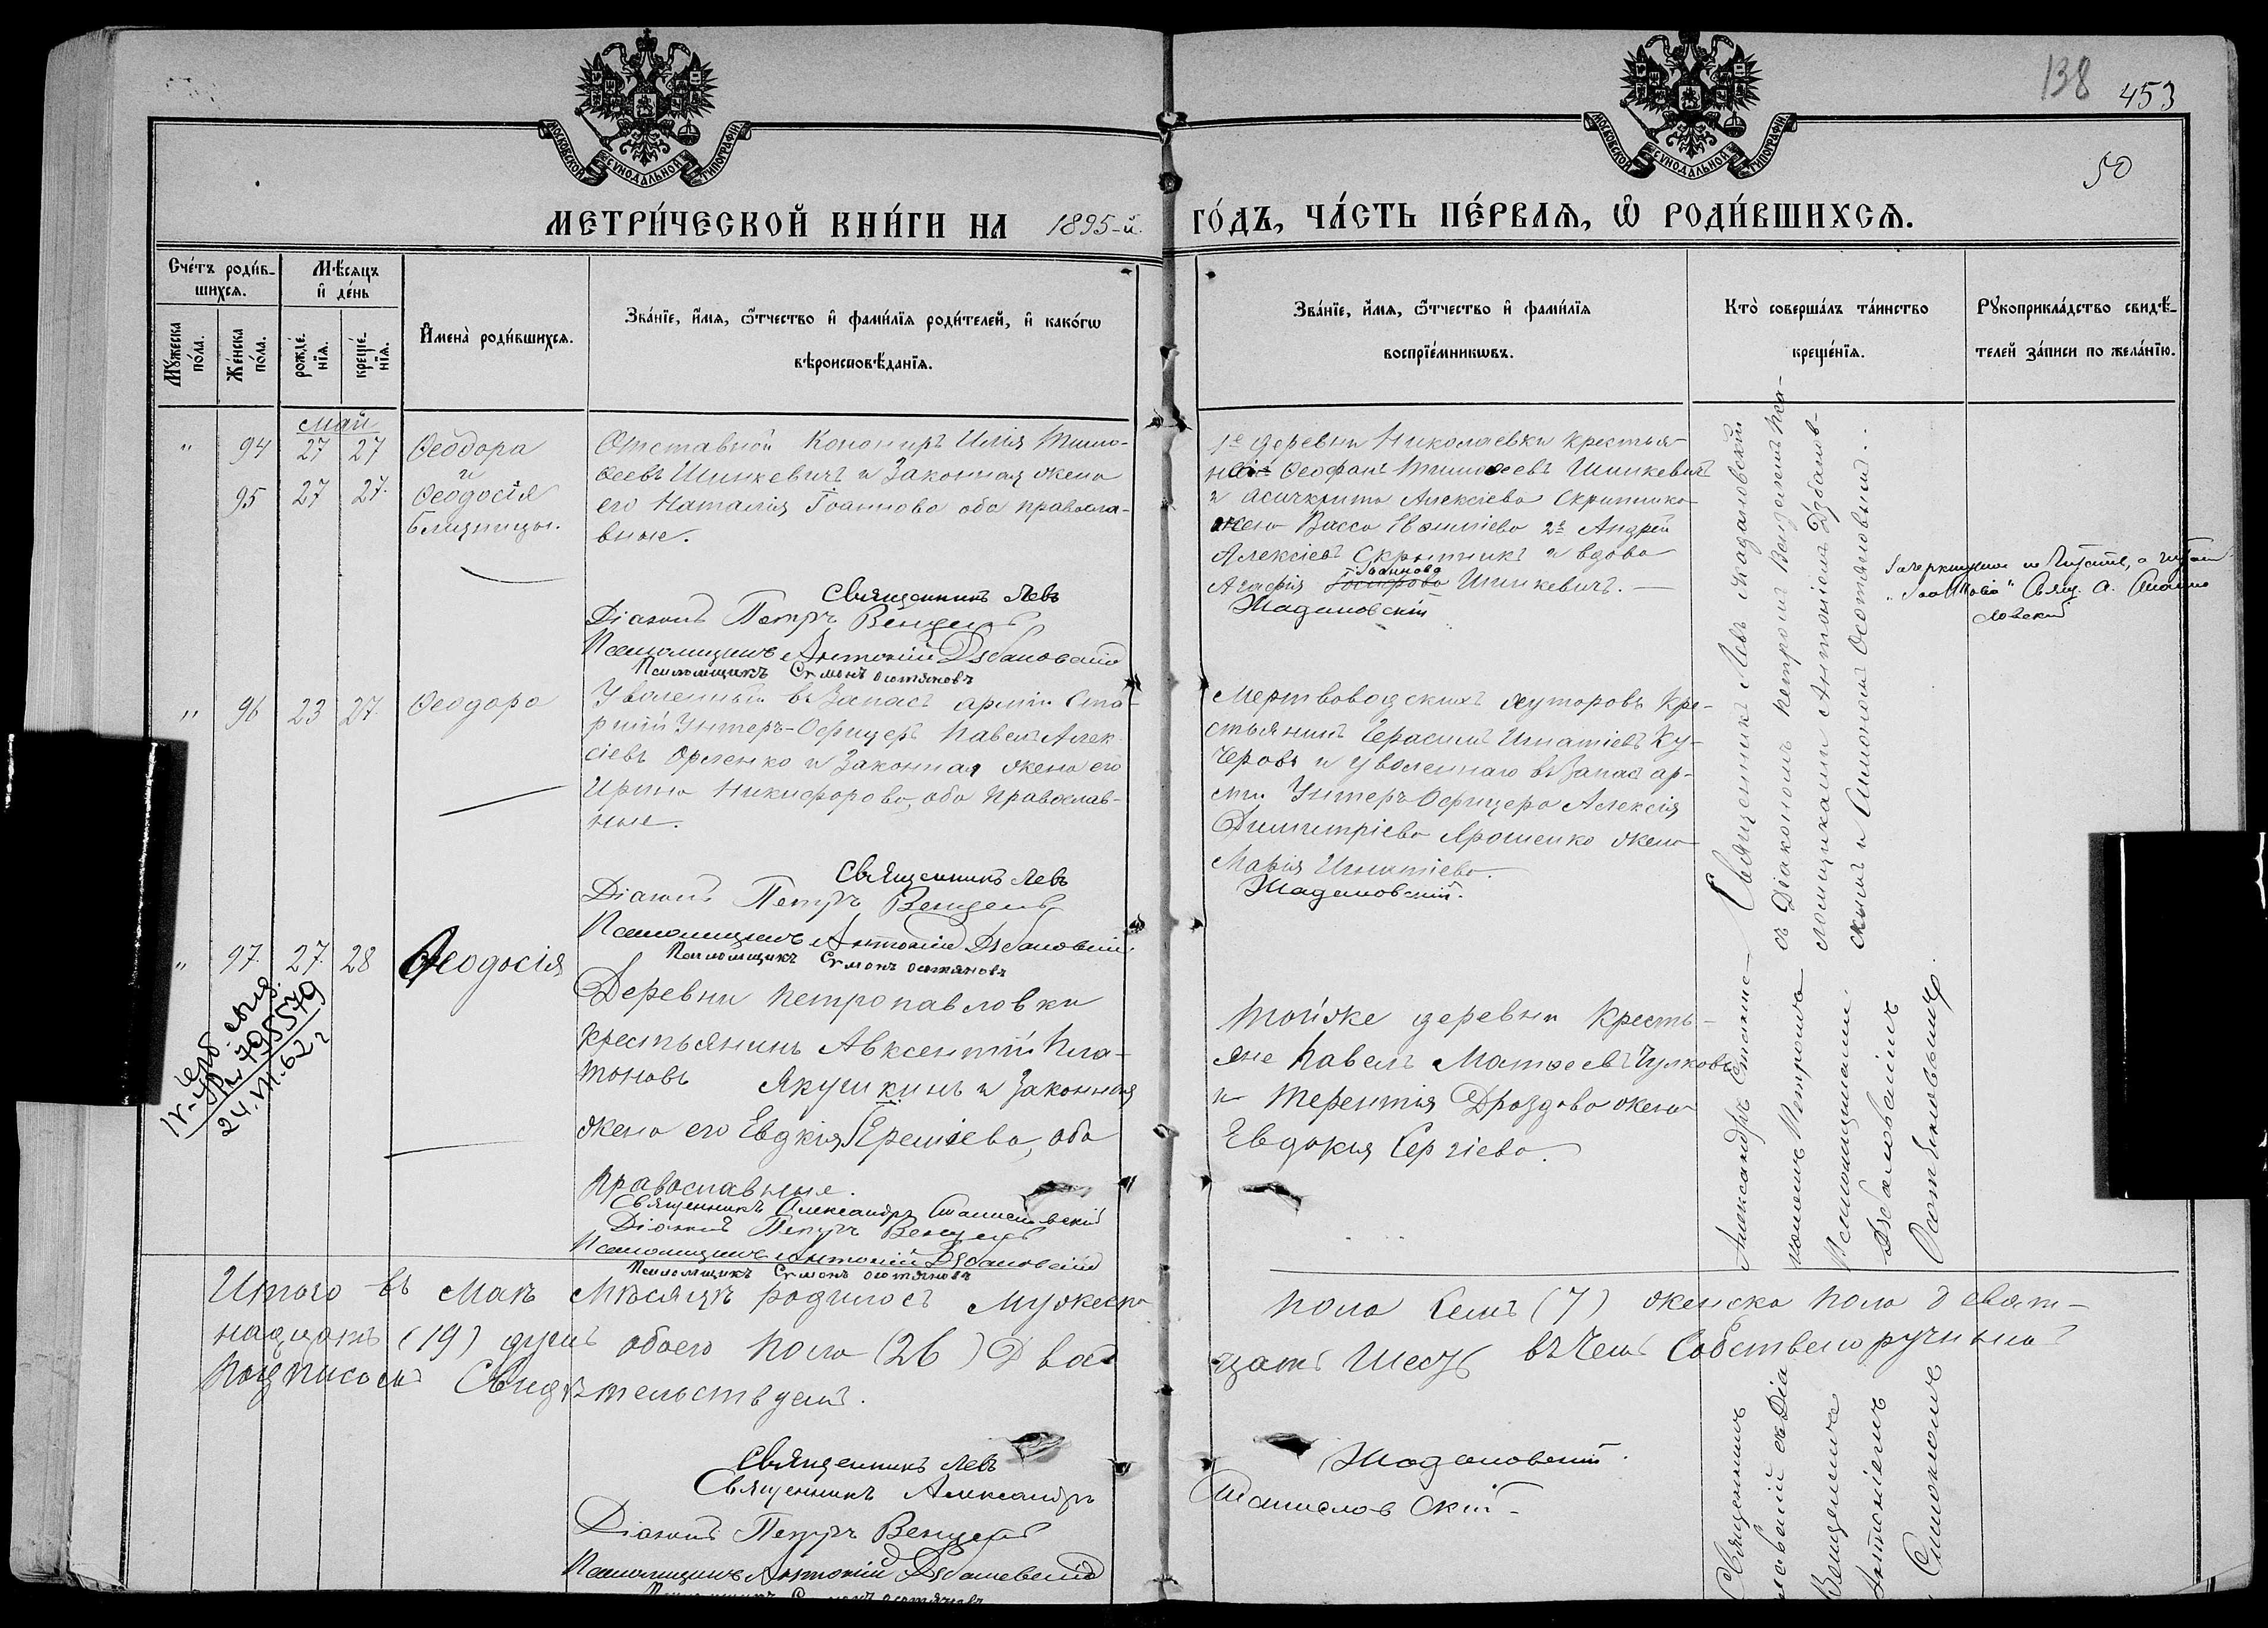 МОСКОВСКОЙ СѴНОДАЛЬНОЙ ТИПОГРАФІИ
МОСКОВСКОЙ СѴНОДАЛЬНОЙ ТИПОГРАФІИ
138 453
50
МЕТРИ́ЧЕСКОЙ КНИ́ГИ НА 1895-й. ГО́ДЪ, ЧА́СТЬ ПЕ́РВАЯ, Ѡ РОДИ́ВШИХСЯ.
Сче́тъ роди́в-
шихся.
Мꙋ́жеска по́ла.
Же́нска по́ла.
Мѣ́сяцъ
и҆ де́нь
рожде́-
нїя.
креще́-
нїя.
И҆мена̀ роди́вшихся.
Зва́нїе, и҆́мя, ѻ҆́тчество и҆ фами́лїя роди́телей, и҆ како́гѡ
вѣроисповѣ́данїя.
Зва́нїе, и҆́мя, ѻ҆́тчество и҆ фами́лїя
воспрїе́мникѡвъ.
Кто̀ соверша́лъ та́инство
креще́нїя.
Рꙋкоприкла́дство свидѣ́-
телей за́писи по жела́нїю.
Май
" 94 27 27 Ѳеодора
и
95 27 27. Ѳеодосія
близницы.
Отставной Канониръ Илія Тимо-
ѳеевъ Шинкевичъ и Законная жена
его Наталія Іоаннова оба правосла-
вные.
Священникъ Левъ
Діаконъ Петръ Венцель
Псаломщикъ Антоній Дзбановскій
Псаломщикъ Сумонъ Остяновъ
1е деревни Николаевки крестья-
Ѳеофанъ Тимоѳеевъ Шинкевичъ
и Асинкрита Алексіева Скрипника
жена Васса 2е Андрей
Алексіевъ Скрыпникъ и вдова
Іоаннова
Агафія Шинкевичъ. —
Жадановскій
Зачеркнутое не читать, а читать
"Іоаннова" Свящ. А. Станис
ловский
" 96 23 27 Ѳеодора
Уволенный въ Запасъ арміи Ста-
ршій Унтеръ-Офицеръ Павелъ Алек-
сіевъ Орленко и Законная жена его
Ирина Никифорова, оба Православ-
ные.
Священникъ Левъ
Діаконъ Петръ Венцель
Псаломщикъ Антоній Дзбановскій
Псаломщикъ Сумонъ Остяновъ
Мертвоводскихъ хуторовъ Кре-
стьянинъ Герасимъ Игнатіевъ Ку-
черовъ и уволеннаго въ Запасъ ар-
міи Унтеръ-Офицера Алексія
Димитріева Ярошенко жена
Марія Игнатіева.
Жадановскій.
" 97. 27. 28 Ѳеодосія
795579
24.VII.62 г
Деревни Петропавловки
крестьянинъ Авксентій Пла-
тоновъ Якушкинъ и Законная
жена его Евдкія Ереміева, оба
Православные.
Священникъ Александръ Станиславскій
Діаконъ Петръ Венцель
Псаломщикъ Антоній Дзбановскій
Псаломщикъ Сумонъ Остяновъ
Той же деревни Кресть-
яне Павелъ Матѳеевъ Чулковъ
и Терентія Дроздова жена
Евдокия Сергіева.
Священникъ Левъ Жадановскій
съ Діакономъ Петромъ Венцелемъ и Пса-
ломщиками Антоніемъ Дзбанов-
скимъ и Симономъ Остяновымъ.
Итого въ Маѣ Мѣсяцѣ родилось Мужеска пола Семь (7) женска пола девят-
надцать (19) душъ обоего пола (26) Двад цать Шесть въ чемъ Собственоручным
подписомъ Свидѣтельствуемъ.
Священникъ Левъ Жадановскій.
Священникъ Александръ Станиславскій.
Діаконъ Петръ Венцель
Псаломщикъ Антоній Дзбановскій
Священникъ
Александръ Станис-
лавскій съ Діа
кономъ Петромъ
Венцелемъ
Псаломщиками
Антоніемъ
Дзбановскимъ
Симономъ
Остяновымъ.